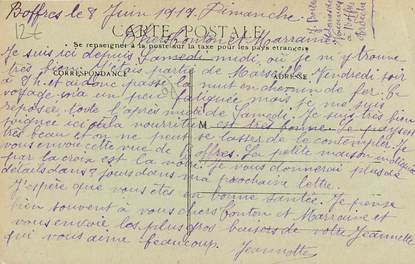 Boffres le 8 Juin 1919. Dimanche.
CARTE POSTALE
Chers Tonton et Marraine
Se renseigner à la poste sur la taxe pour les pays étrangers
Je suis ici depuis Samedi midi, où je m'y trouve
CORRESPONDANCE
ADRESSE
très bien. Je suis partie de Marseille Vendredi soir
à 9h et ai donc passé la nuit en chemin de fer. Ce
voyage m'a un peu fatiguée mais je me suis
reposée toute l'après midi de Samedi. Je suis très bien
soignée ici et la nourriture est très bonne. Le paysage
très beau et on ne peut se lasser de le contempler. Je
vous envoie cette vue de Boffres. La petite maison
par la croix est la nôtre. Je vous donnerai plus de
détails dans ma prochaine lettre.
J'espère que vous êtes en bonne santée. Je pense
bien souvent à vous chers Tonton et Marraine et
vous envoie les plus gros baisers de votre Jeannette
qui vous aime beaucoup.
Jeannette